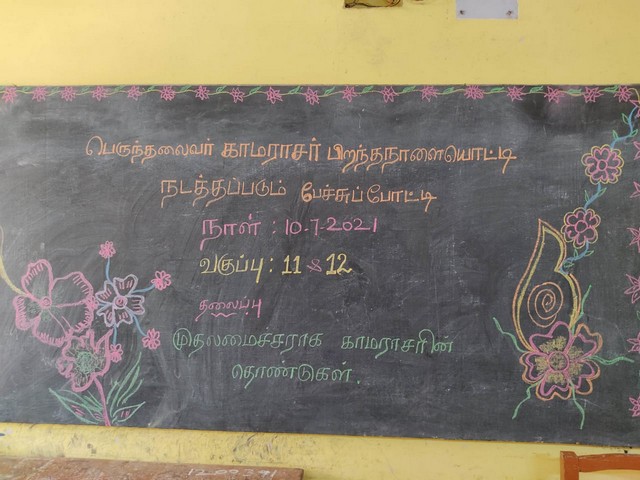 பெருந்தலைவர் காமராசர் பிறந்தநாளையொட்டி
நடத்தப்படும் பேச்சுப்போட்டி
நாள் : 10-7-2021
வகுப்பு : 11 & 12
தலைப்பு
முதலமைச்சராக காமராசரின்
தொண்டுகள்.